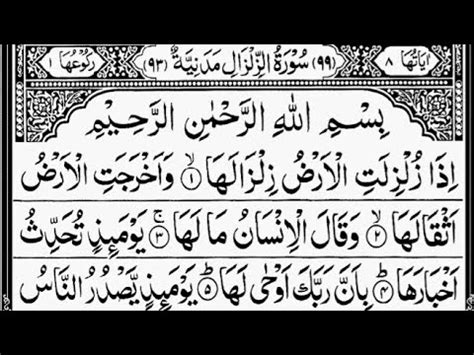 اٰيَاتُهَا ٨ (٩٩) سُوْرَةُ الزِّلْزَالِ مَدَنِيَّةٌ (٩٣) رُكُوْعُهَا ١
بِسْمِ اللهِ الرَّحْمٰنِ الرَّحِيْمِ
اِذَا زُلْزِلَتِ الْاَرْضُ زِلْزَالَهَا ۙ﴿١﴾ وَاَخْرَجَتِ الْاَرْضُ
اَثْقَالَهَا ۙ﴿٢﴾ وَقَالَ الْاِنْسَانُ مَا لَهَا ۚ﴿٣﴾ يَوْمَئِذٍ تُحَدِّثُ
اَخْبَارَهَا ۙ﴿٤﴾ بِاَنَّ رَبَّكَ اَوْحٰى لَهَا ؕ﴿٥﴾ يَوْمَئِذٍ يَّصْدُرُ النَّاسُ